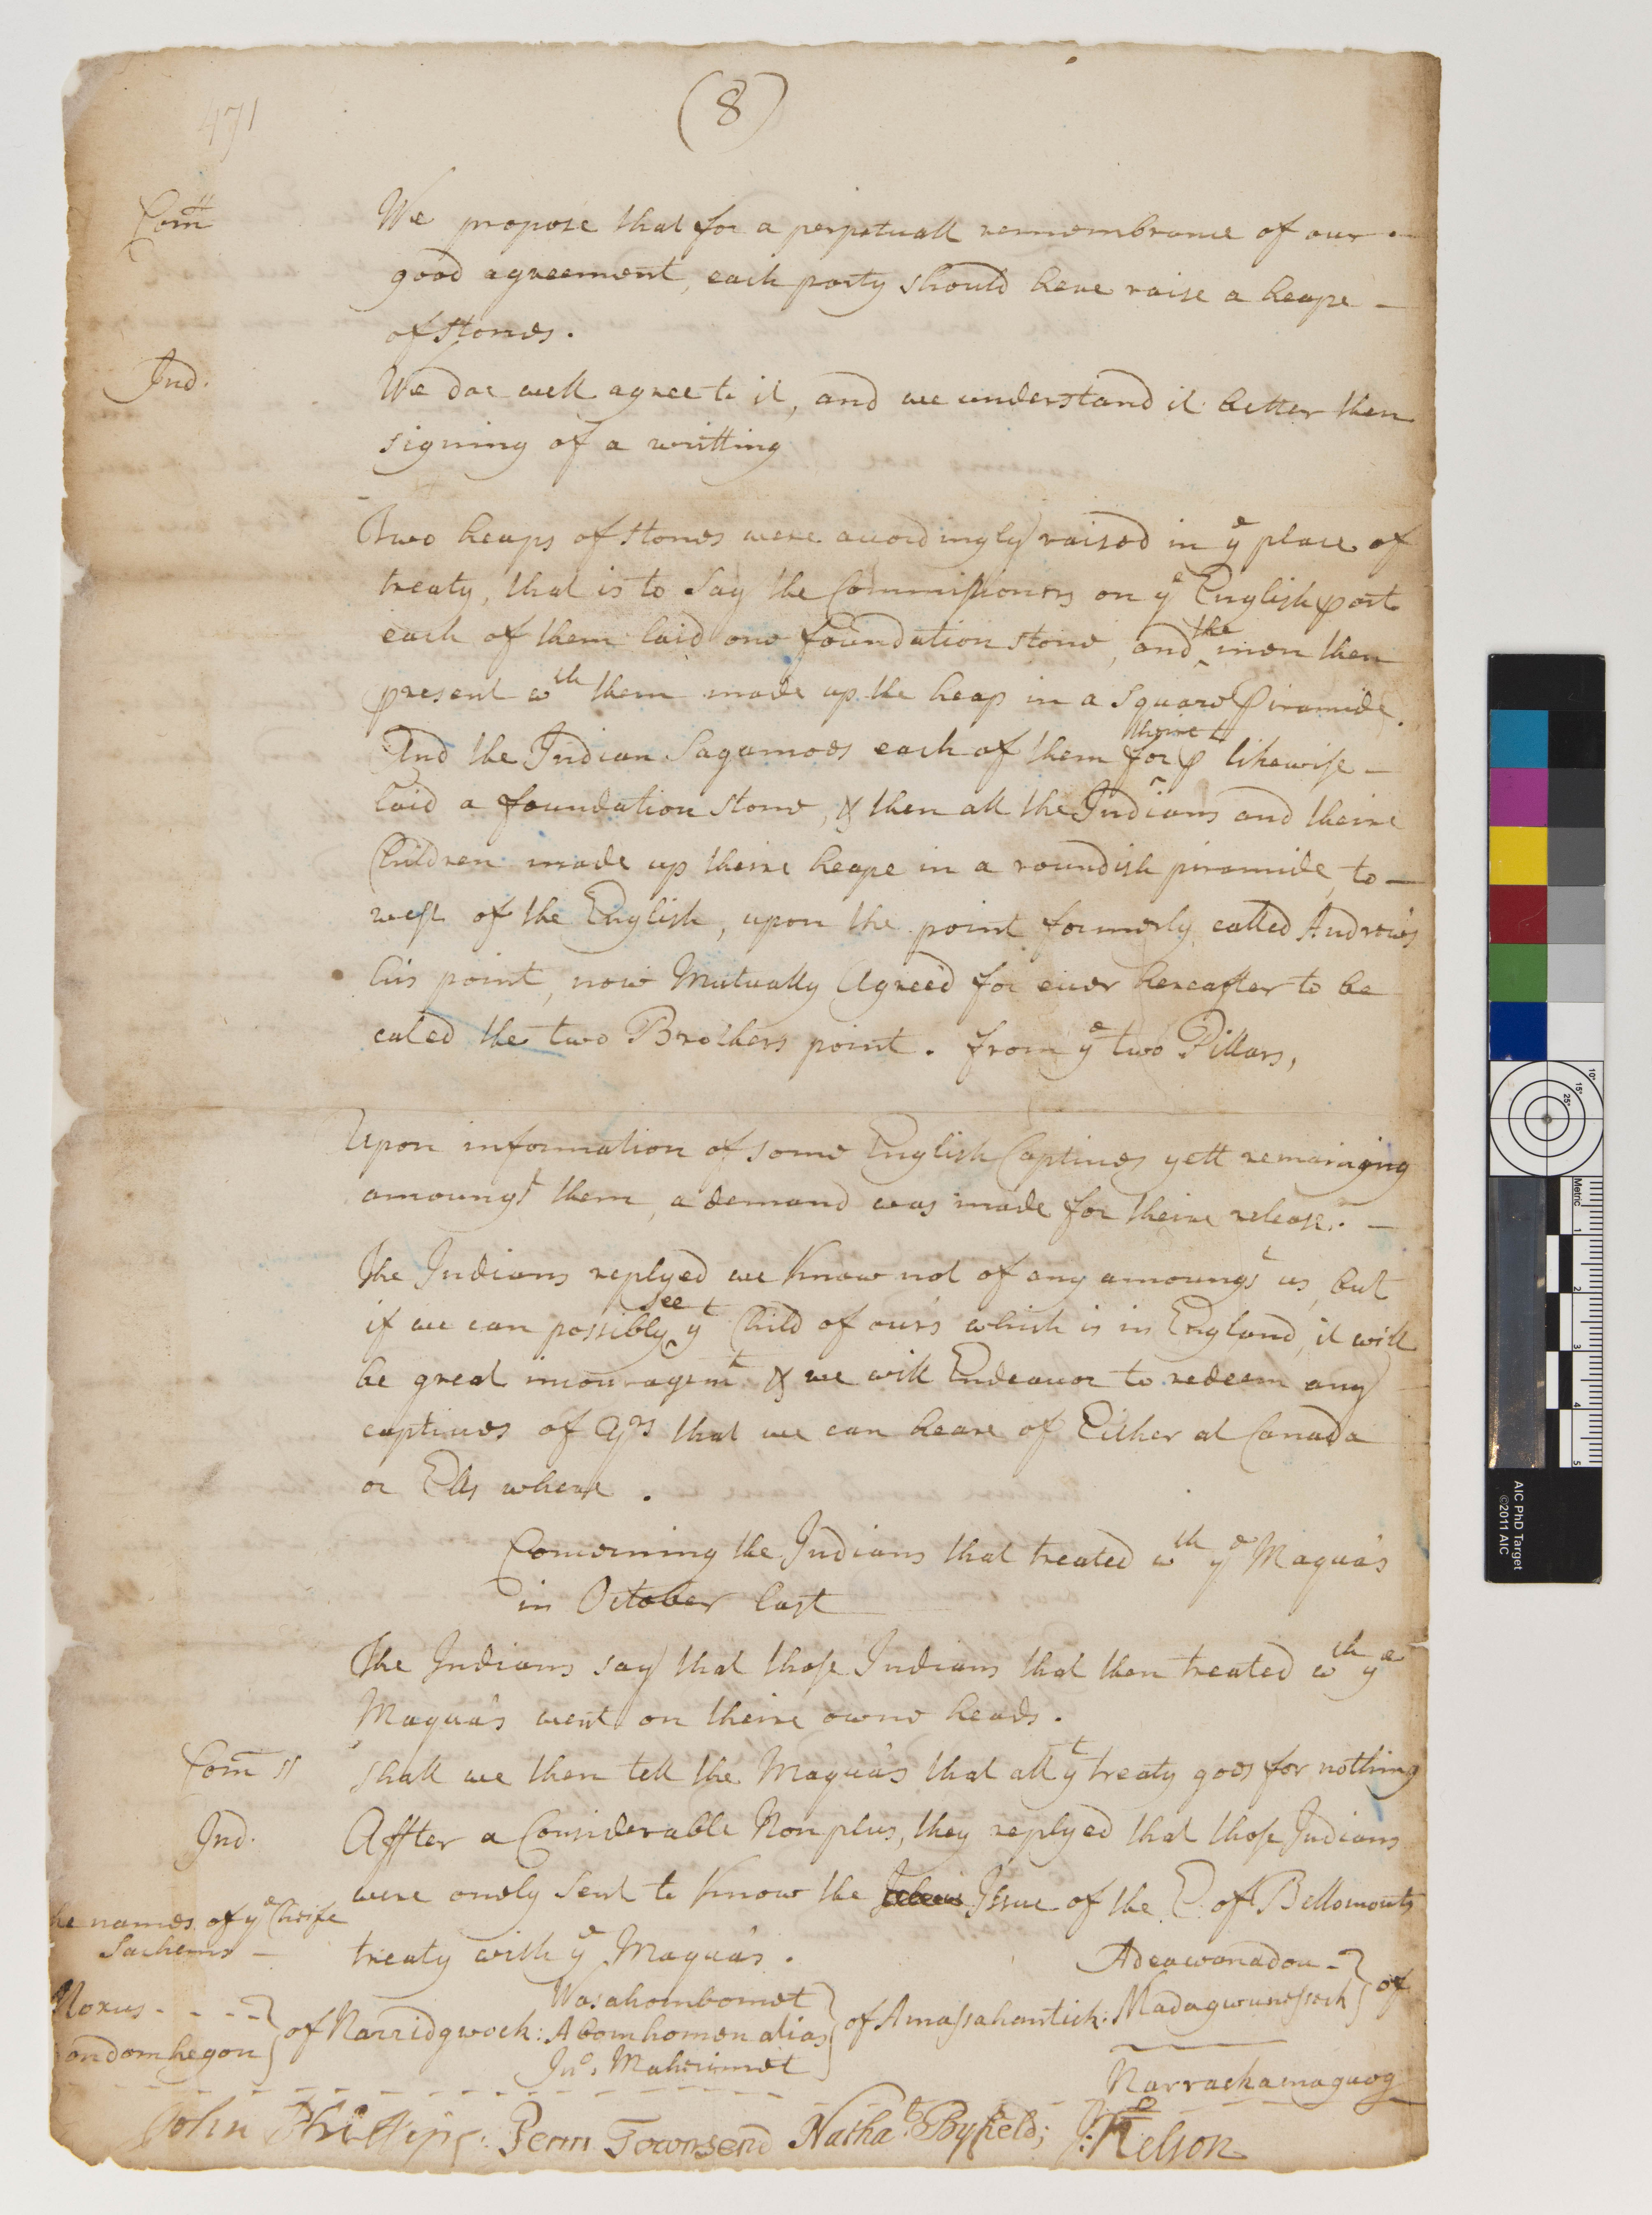 (8)
471
Com:rs We propose that for a perpetuall remembrance of our
good agreement, each party should here raise a heape
of stones.
Ind. We doe well agree to it, and we understand it better then
signing of a writting
Two heaps of stones were accordingly raised in ye place of
treaty, that is to say the Commissioners on ye English part
each of them laid one foundation stone, and the men then
present wth them made up the heap in a square Piramide.
And the Indian Sagamores each of them likewise
laid a foundation stone, & then all the Indians and theire
Children made up theire heape in a roundish piramide, to
west of the English, upon the point formerly called Andrew's
his point, now Mutually Agreed for ever hereafter to be
caled the two Brothers point. from ye two Pillars,
Upon information of some English Captives yett remaining
amoungst them, a demand was made for theire release.
The Indians replyed we know not of any amoungst us, but
if we can possibly see yt Child of ours which is in England, it will
be great incouragemt & we will Endeavor to redeem any
captives of yrs that we can heare of Either at Canada
or Els where.
Concerning the Indians that treated wth ye Maqua's
in October last
The Indians say that those Indians that then treated wth ye
Maqua's went on theire owne heads.
Com:rs Shall we then tell the Maqua's that all yt treaty goes for nothing
Ind. Affter a Considerable Nonplus, they replyed that those Indians
were onely sent to know the Issue of the E. of Bellomonts
treaty with ye Maqua's.
he names of ye Cheife
Sachems
Moxus
ondomhegon } of Narridgwock:
Wasahombomet
Abomhomen alias
Jno. Maheimet } of Amassahantick:
Adeawanadon
Madagwunesseck } of
Narrackamagwog
John Phillips: Penn Townsend Nathal Byfield; Jno: Nelson
AIC PhD Target
©2011 AIC
Metric
1
2
3
4
5
10°
15°
25°